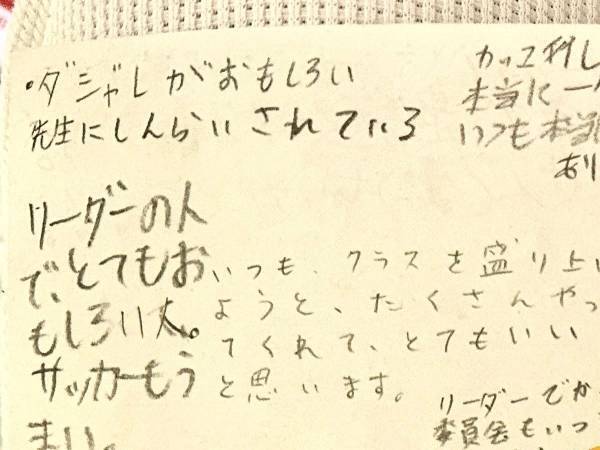 ・ダジャレがおもしろい
先生にしんらいされている
カッコ
本当に一
いつも本当
あり
リーダーの人
で、とてもお
もしろい人。
サッカーもう
まい。
いつも、クラスを盛り上
ようと、たくさんやっ
てくれて、とてもいい
と思います。
リーダーでか
委員会もいつ